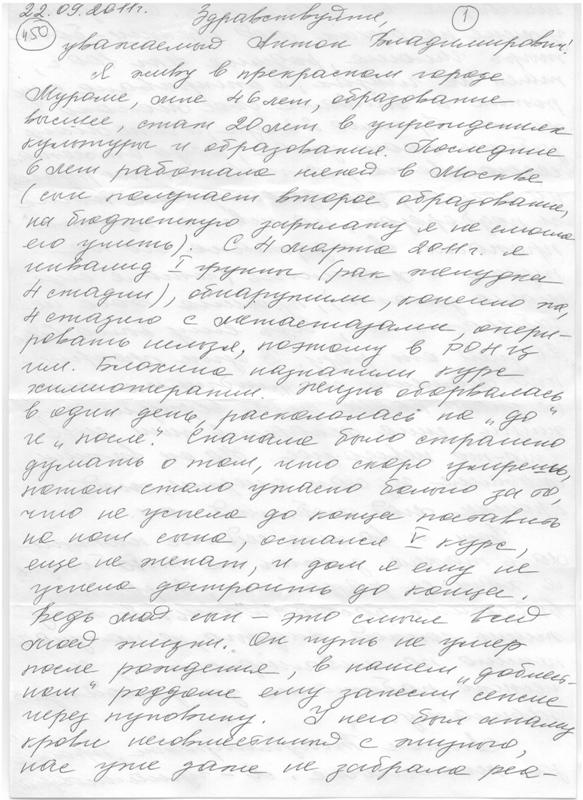 22.09.2011г.
1
450
Здравствуйте,
уважаемый Антон Владимирович!
Я живу в прекрасном городе
Муроме, мне 46 лет, образование
высшее, стаж 20 лет в учреждениях
культуры и образования. Последние
6 лет работала няней в Москве
(сын получает второе образование,
на бюджетную зарплату я не смогла
его учить). С 4 марта 2011г. я
инвалид I группы (рак желудка
4 стадии), обнаружили, конечно
4 стадию с метастазами, опери-
ровать нельзя, поэтому в РОНЦ
им. Блохина назначили курс
химиотерапии. Жизнь оборвалась
в один день, раскололась на „до“
и „после“. Сначала было страшно
думать о том, что скоро умрешь,
потом стало ужасно больно за то,
что не успела до конца поставить
на ноги сына, остался V курс,
еще не женат, и дом я ему не
успела достроить до конца.
Ведь мой сын – это смысл всей
моей жизни. Он чуть не умер
после рождения, в нашем „доблест-
ном“ роддоме ему занесли сепсис
через пуповину. У него был анализ
крови несовместимый с жизнью,
нас уже даже не забрала реа-